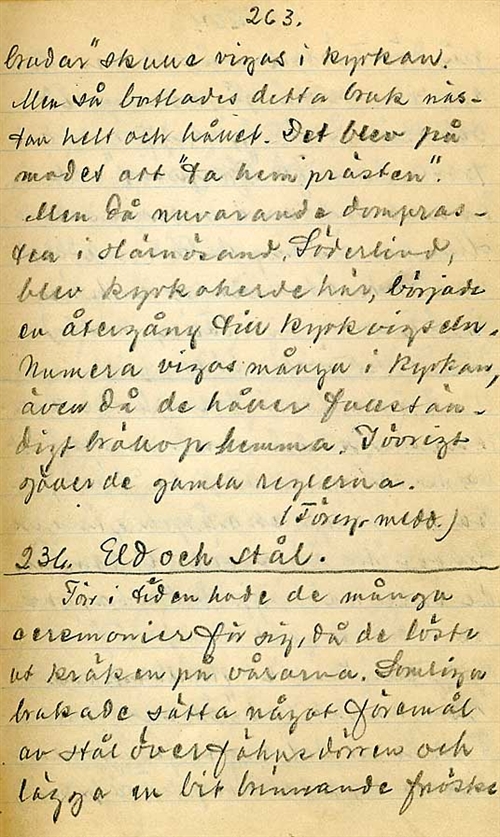 263.
brudar" skulle vigas i kyrkan.
Men så bortlades detta bruk näs-
tan helt och hållet. Det blev på
modet att "ta hem prästen".
Men då nuvarande dompros-
ten i Härnösand, Söderlind,
blev kyrkoherde här, började
en återgång till kyrkvigseln.
Numera vigas många i kyrkan,
även då de håller fullstän-
digt bröllop hemma. I övrigt
gäller de gamla reglerna.
(Föreg. medd.)
236. Eld och stål.
Förr i tiden hade de många
ceremonier för sig, då de löste
ut kräken på vårarna. Somliga
brukade sätta något föremål
av stål över fähusdörren och
lägga en bit brinnande fnöske